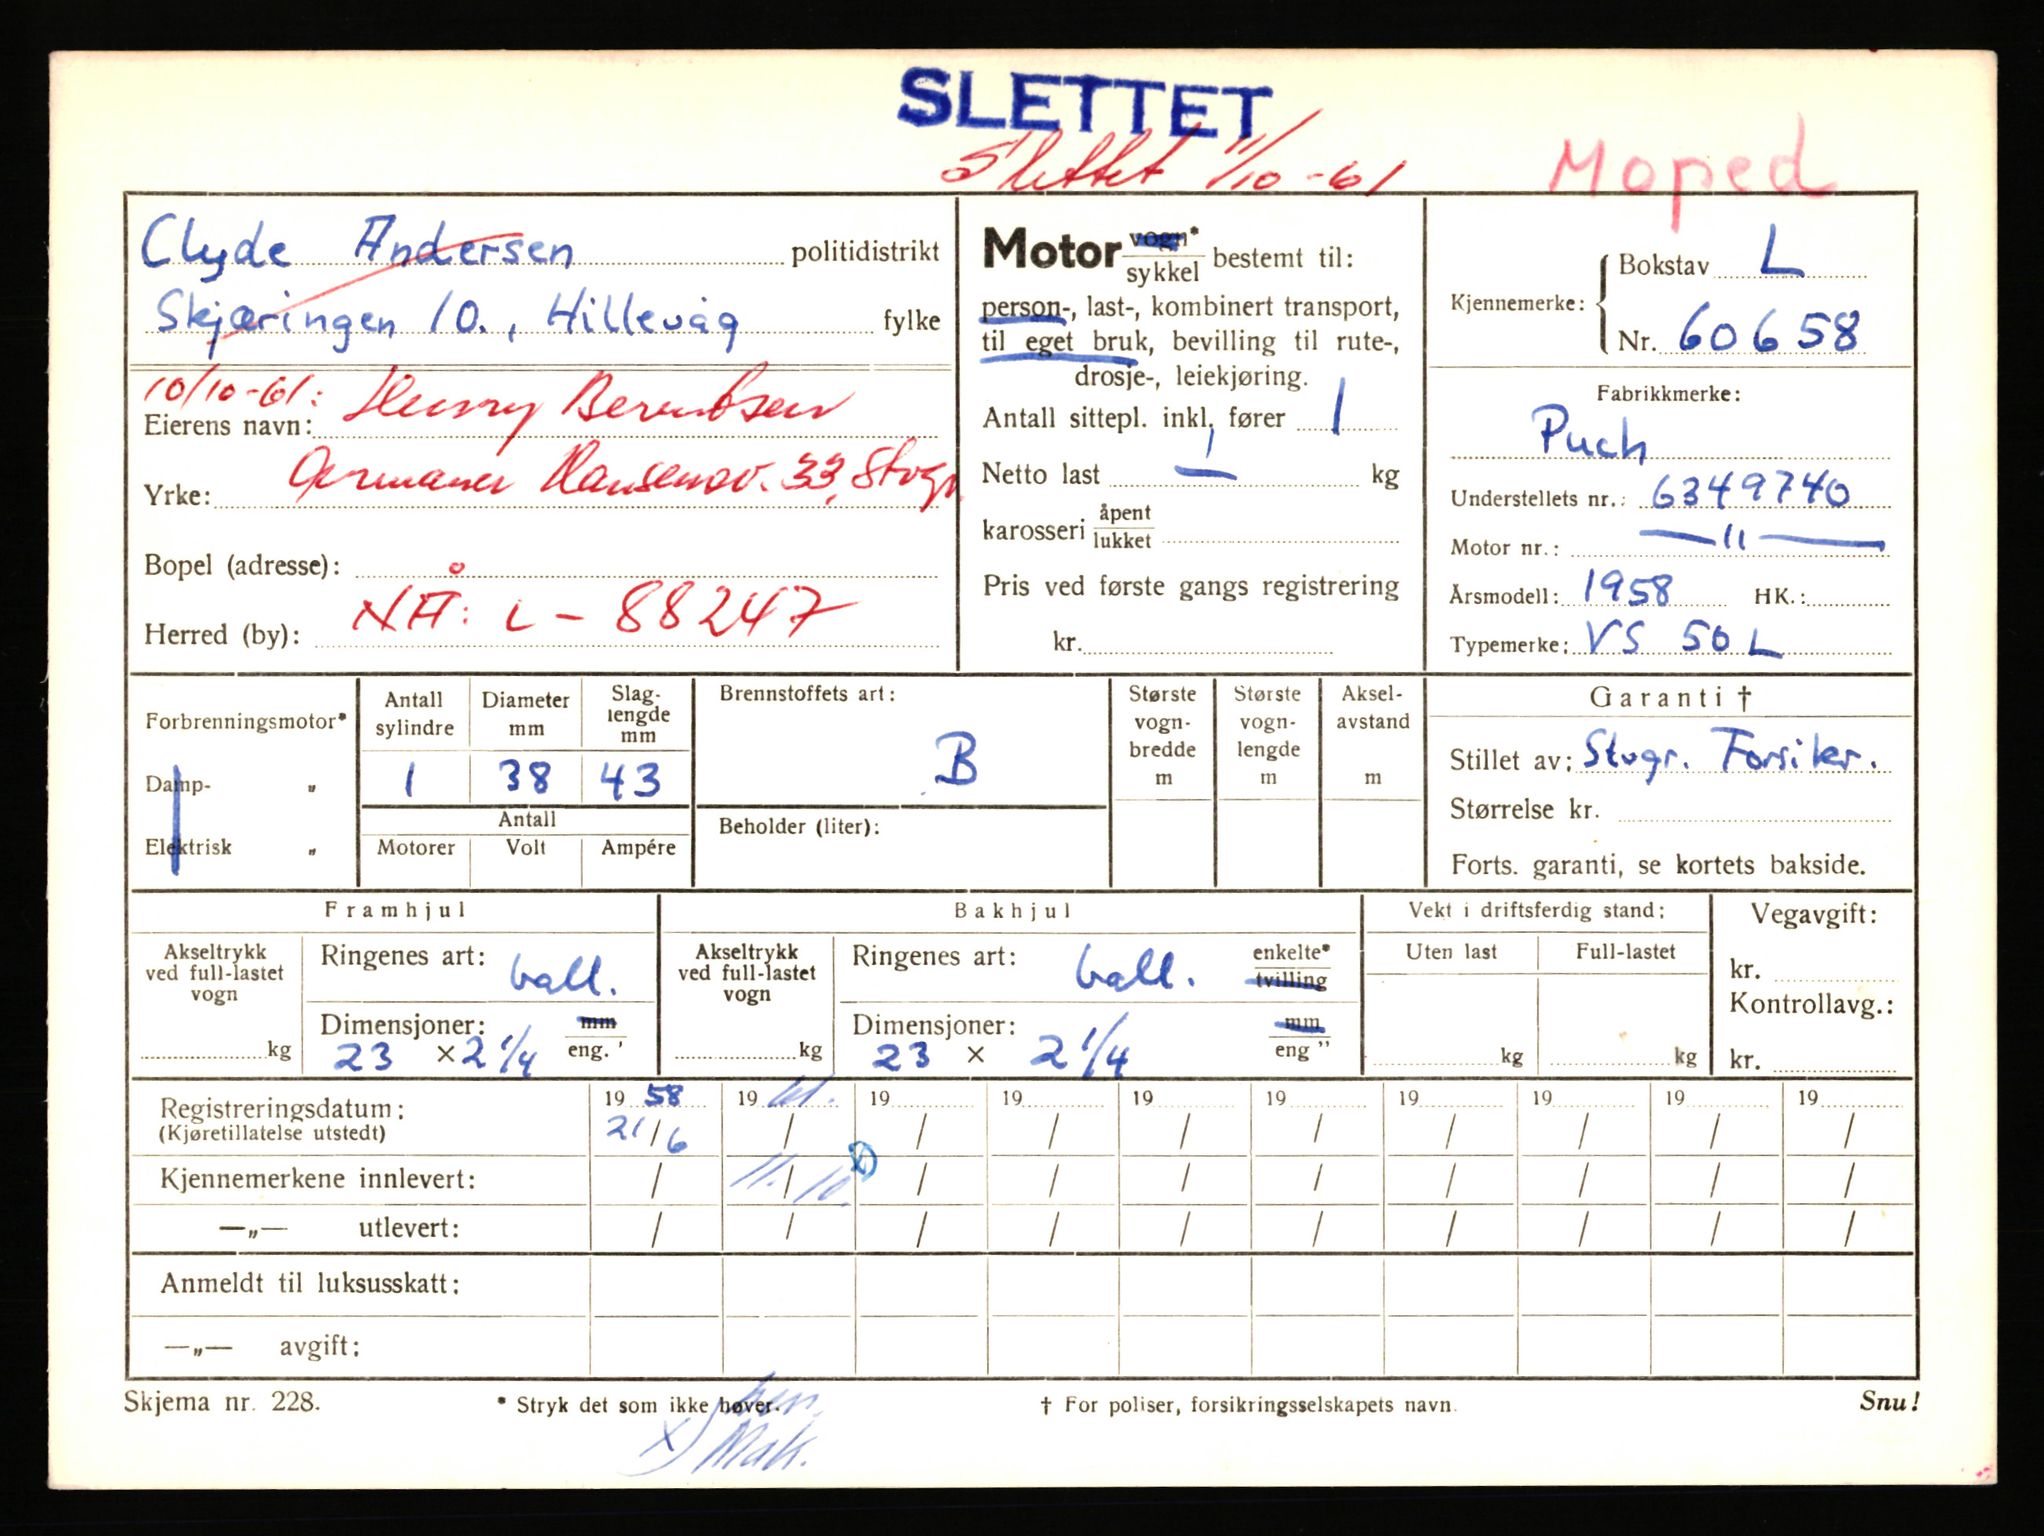 SLETTET
Slettet 11/10-61
Moped
Clyde Andersen politidistrikt
Skjæringen 10., Hillevåg fylke
10/10-61: Henry Berentsen
Eierens navn:
Hansensv. 33, Stvgr
Yrke:
Bopel (adresse):
NÅ: L - 88247
Herred (by):
Motor vogn*
sykkel bestemt til:
person-, last-, kombinert transport,
til eget bruk, bevilling til rute-,
drosje-, leiekjøring.
Antall sittepl. inkl. fører 1
Netto last — kg
karosseri åpent
lukket
Pris ved første gangs registrering
kr.
Kjennemerke: Bokstav L
Nr. 60658
Fabrikkmerke:
Puch
Understellets nr.: 6349740
Motor nr.: — 11 —
Årsmodell: 1958 HK.:
Typemerke: VS 50 L
Forbrenningsmotor*
Damp- „
Elektrisk „
Antall sylindre Diameter mm Slaglengde mm
1 38 43
Antall
Motorer Volt Ampére
Brennstoffets art:
B
Beholder (liter):
Største vognbredde m
Største vognlengde m
Akselavstand m
Garanti †
Stillet av: Stvgr. Forsikr.
Størrelse kr.
Forts. garanti, se kortets bakside.
Framhjul
Akseltrykk
ved full-lastet
vogn
kg
Ringenes art: ball.
Dimensjoner: mm
23 × 2 1/4 eng. '
Bakhjul
Akseltrykk
ved full-lastet
vogn
kg
Ringenes art: ball. enkelte*
tvilling
Dimensjoner: mm
23 × 2 1/4 eng "
Vekt i driftsferdig stand:
Uten last Full-lastet
kg kg
Vegavgift:
kr.
Kontrollavg.:
kr.
Registreringsdatum: 19 58 19 61. 19 19 19 19 19 19 19 19
(Kjøretillatelse utstedt) 21/6 / / / / / / / / /
Kjennemerkene innlevert: / 11./10. x) / / / / / / / /
—„— utlevert: / / / / / / / / / /
Anmeldt til luksusskatt:
—„— avgift:
Skjema nr. 228.
* Stryk det som ikke høver.
† For poliser, forsikringsselskapets navn.
Snu!
x)